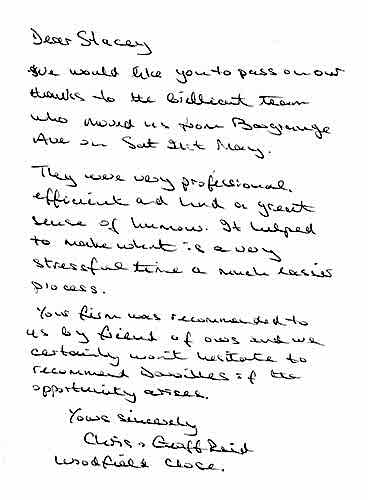 Dear Stacey
We would like you to pass on our
thanks to the brilliant team
who moved us from
Ave on Sat 21st May.
They were very professional,
efficient and had a great
sense of humour. It helped
to make what is a very
stressful time a much easier
process.
Your firm was recommended to
us by friend of ours and we
certainly won't hesitate to
recommend if the
opportunity arises.
Yours sincerely
Chris & Geoff Reid
Woodfield Close.